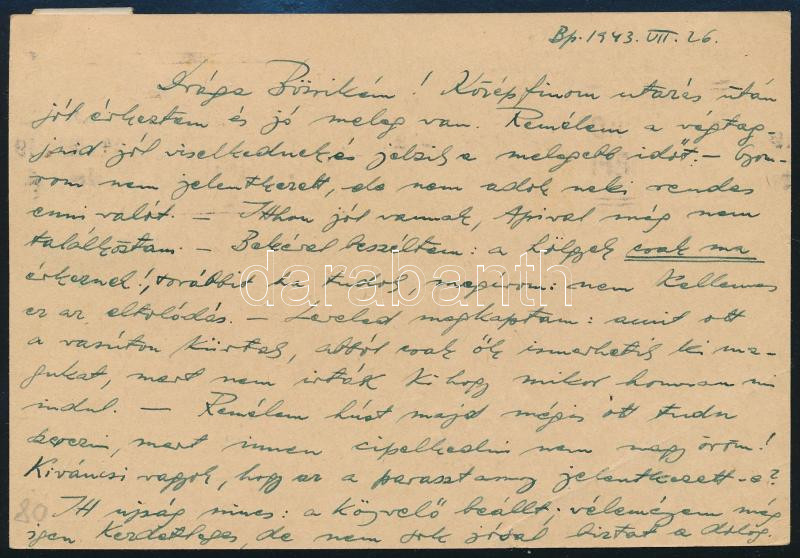 Bp. 1943. VII. 26.
Drága Bözsikém! Középfinom utazás után
jól érkeztem és jó meleg van. Remélem a végtag-
jaid jól viselkednek és jelzik a melegebb időt. – Gyom-
rom nem jelentkezett, de nem adok neki rendes
enni valót. – Itthon jól vannak, Apival még nem
találkoztam. – Bekével beszéltem: a hölgyek csak ma
érkeznek!, további ha tudok, megírom: nem kellemes
ez az eltolódás. – Leveled megkaptam: amit ott
a vasúton kiírtak, abból csak ők ismerhetik ki ma-
gukat, mert nem írták ki hogy mikor honnan mi
indul. – Remélem húst majd mégis ott tudu
szerezni, mert innen cipelkedni nem nagy öröm!
Kiváncsi vagyok, hogy az a parasztasszony jelentkezett-e?
Itt ujság nincs: a
beállt, véleményem még
igen kezdetleges, de nem sok jóval biztat a dolog.
80
darabanth